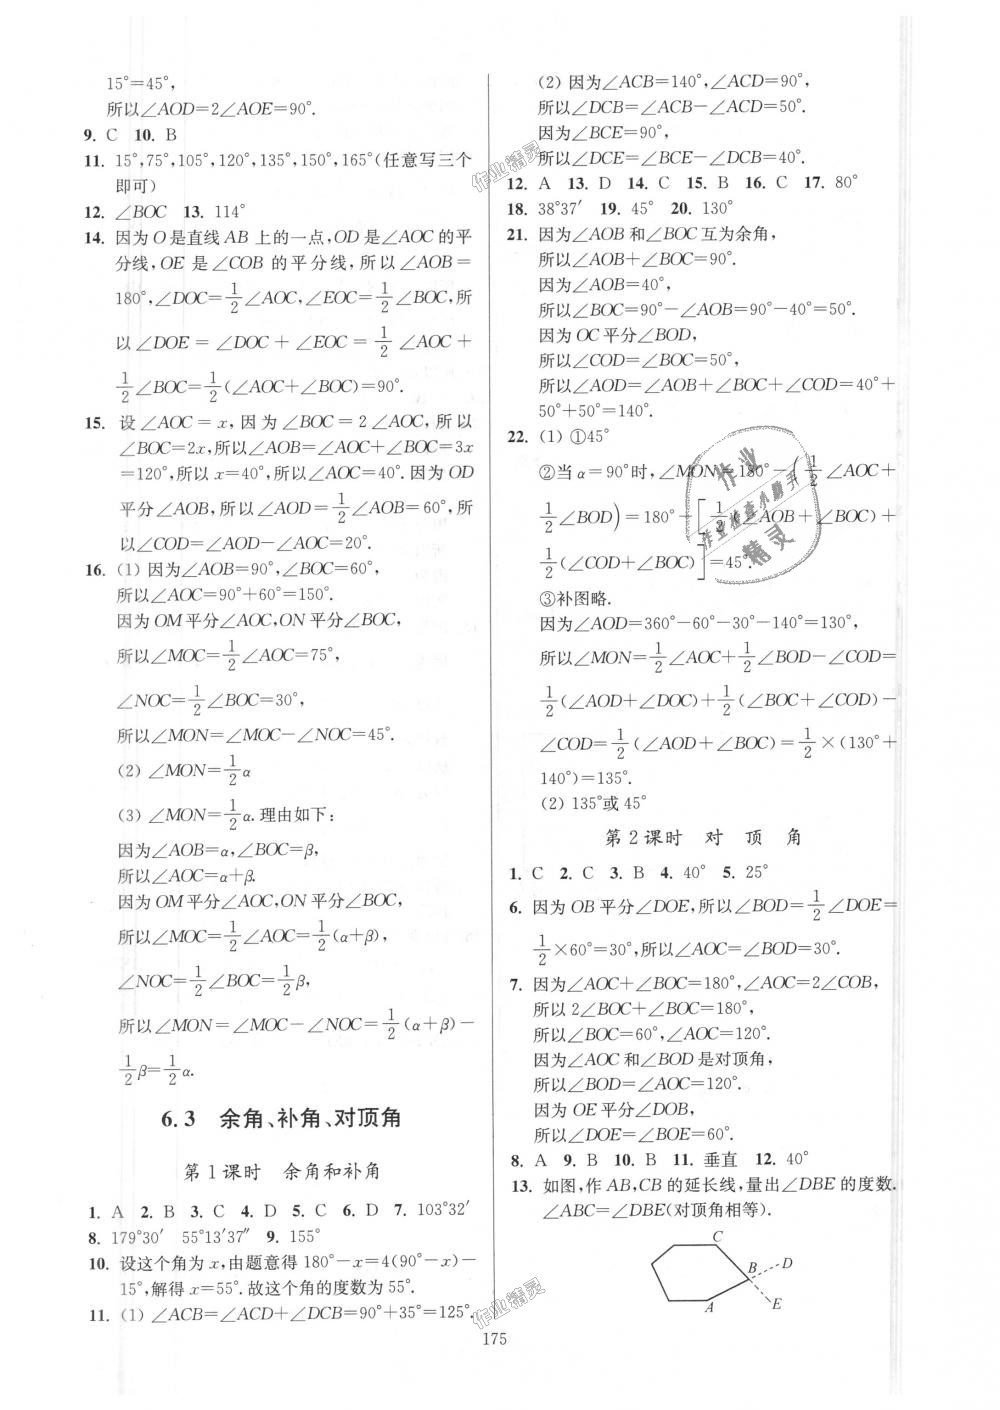 15°=45°,
所以∠AOD=2∠AOE=90°.
9. C 10. B
11. 15°,75°,105°,120°,135°,150°,165°(任意写三个
即可)
12. ∠BOC 13. 114°
14. 因为O是直线AB上的一点,OD是∠AOC的平
分线,OE是∠COB的平分线,所以∠AOB=
180°,∠DOC=1/2∠AOC,∠EOC=1/2∠BOC,所
以∠DOE=∠DOC+∠EOC=1/2∠AOC+
1/2∠BOC=1/2(∠AOC+∠BOC)=90°.
15. 设∠AOC=x,因为∠BOC=2∠AOC,所以
∠BOC=2x,所以∠AOB=∠AOC+∠BOC=3x
=120°,所以x=40°,所以∠AOC=40°.因为OD
平分∠AOB,所以∠AOD=1/2∠AOB=60°,所
以∠COD=∠AOD-∠AOC=20°.
16. (1) 因为∠AOB=90°,∠BOC=60°,
所以∠AOC=90°+60°=150°.
因为OM平分∠AOC,ON平分∠BOC,
所以∠MOC=1/2∠AOC=75°,
∠NOC=1/2∠BOC=30°,
所以∠MON=∠MOC-∠NOC=45°.
(2) ∠MON=1/2α
(3) ∠MON=1/2α.理由如下:
因为∠AOB=α,∠BOC=β,
所以∠AOC=α+β.
因为OM平分∠AOC,ON平分∠BOC,
所以∠MOC=1/2∠AOC=1/2(α+β),
∠NOC=1/2∠BOC=1/2β,
所以∠MON=∠MOC-∠NOC=1/2(α+β)-
1/2β=1/2α.
6.3 余角、补角、对顶角
第1课时 余角和补角
1. A 2. B 3. C 4. D 5. C 6. D 7. 103°32′
8. 179°30′ 55°13′37″ 9. 155°
10. 设这个角为x,由题意得180°-x=4(90°-x)-
15°,解得x=55°.故这个角的度数为55°.
11. (1) ∠ACB=∠ACD+∠DCB=90°+35°=125°.
(2) 因为∠ACB=140°,∠ACD=90°,
所以∠DCB=∠ACB-∠ACD=50°.
因为∠BCE=90°,
所以∠DCE=∠BCE-∠DCB=40°.
12. A 13. D 14. C 15. B 16. C 17. 80°
18. 38°37′ 19. 45° 20. 130°
21. 因为∠AOB和∠BOC互为余角,
所以∠AOB+∠BOC=90°.
因为∠AOB=40°,
所以∠BOC=90°-∠AOB=90°-40°=50°.
因为OC平分∠BOD,
所以∠COD=∠BOC=50°,
所以∠AOD=∠AOB+∠BOC+∠COD=40°+
50°+50°=140°.
22. (1) ①45°
②当α=90°时,∠MON=180°-(1/2∠AOC+
1/2∠BOD)=180°-[1/2(∠AOB+∠BOC)+
1/2(∠COD+∠BOC)]=45°.
③补图略.
因为∠AOD=360°-60°-30°-140°=130°,
所以∠MON=1/2∠AOC+1/2∠BOD-∠COD=
1/2(∠AOD+∠DOC)+1/2(∠BOC+∠COD)-
∠COD=1/2(∠AOD+∠BOC)=1/2×(130°+
140°)=135°.
(2) 135°或45°
第2课时 对顶角
1. C 2. C 3. B 4. 40° 5. 25°
6. 因为OB平分∠DOE,所以∠BOD=1/2∠DOE=
1/2×60°=30°,所以∠AOC=∠BOD=30°.
7. 因为∠AOC+∠BOC=180°,∠AOC=2∠COB,
所以2∠BOC+∠BOC=180°,
所以∠BOC=60°,∠AOC=120°.
因为∠AOC和∠BOD是对顶角,
所以∠BOD=∠AOC=120°.
因为OE平分∠DOB,
所以∠DOE=∠BOE=60°.
8. A 9. B 10. B 11. 垂直 12. 40°
13. 如图,作AB,CB的延长线,量出∠DBE的度数.
∠ABC=∠DBE(对顶角相等).
C
B
D
A
E
175
作业精灵
作业
作业检查小助手
精灵
作业精灵